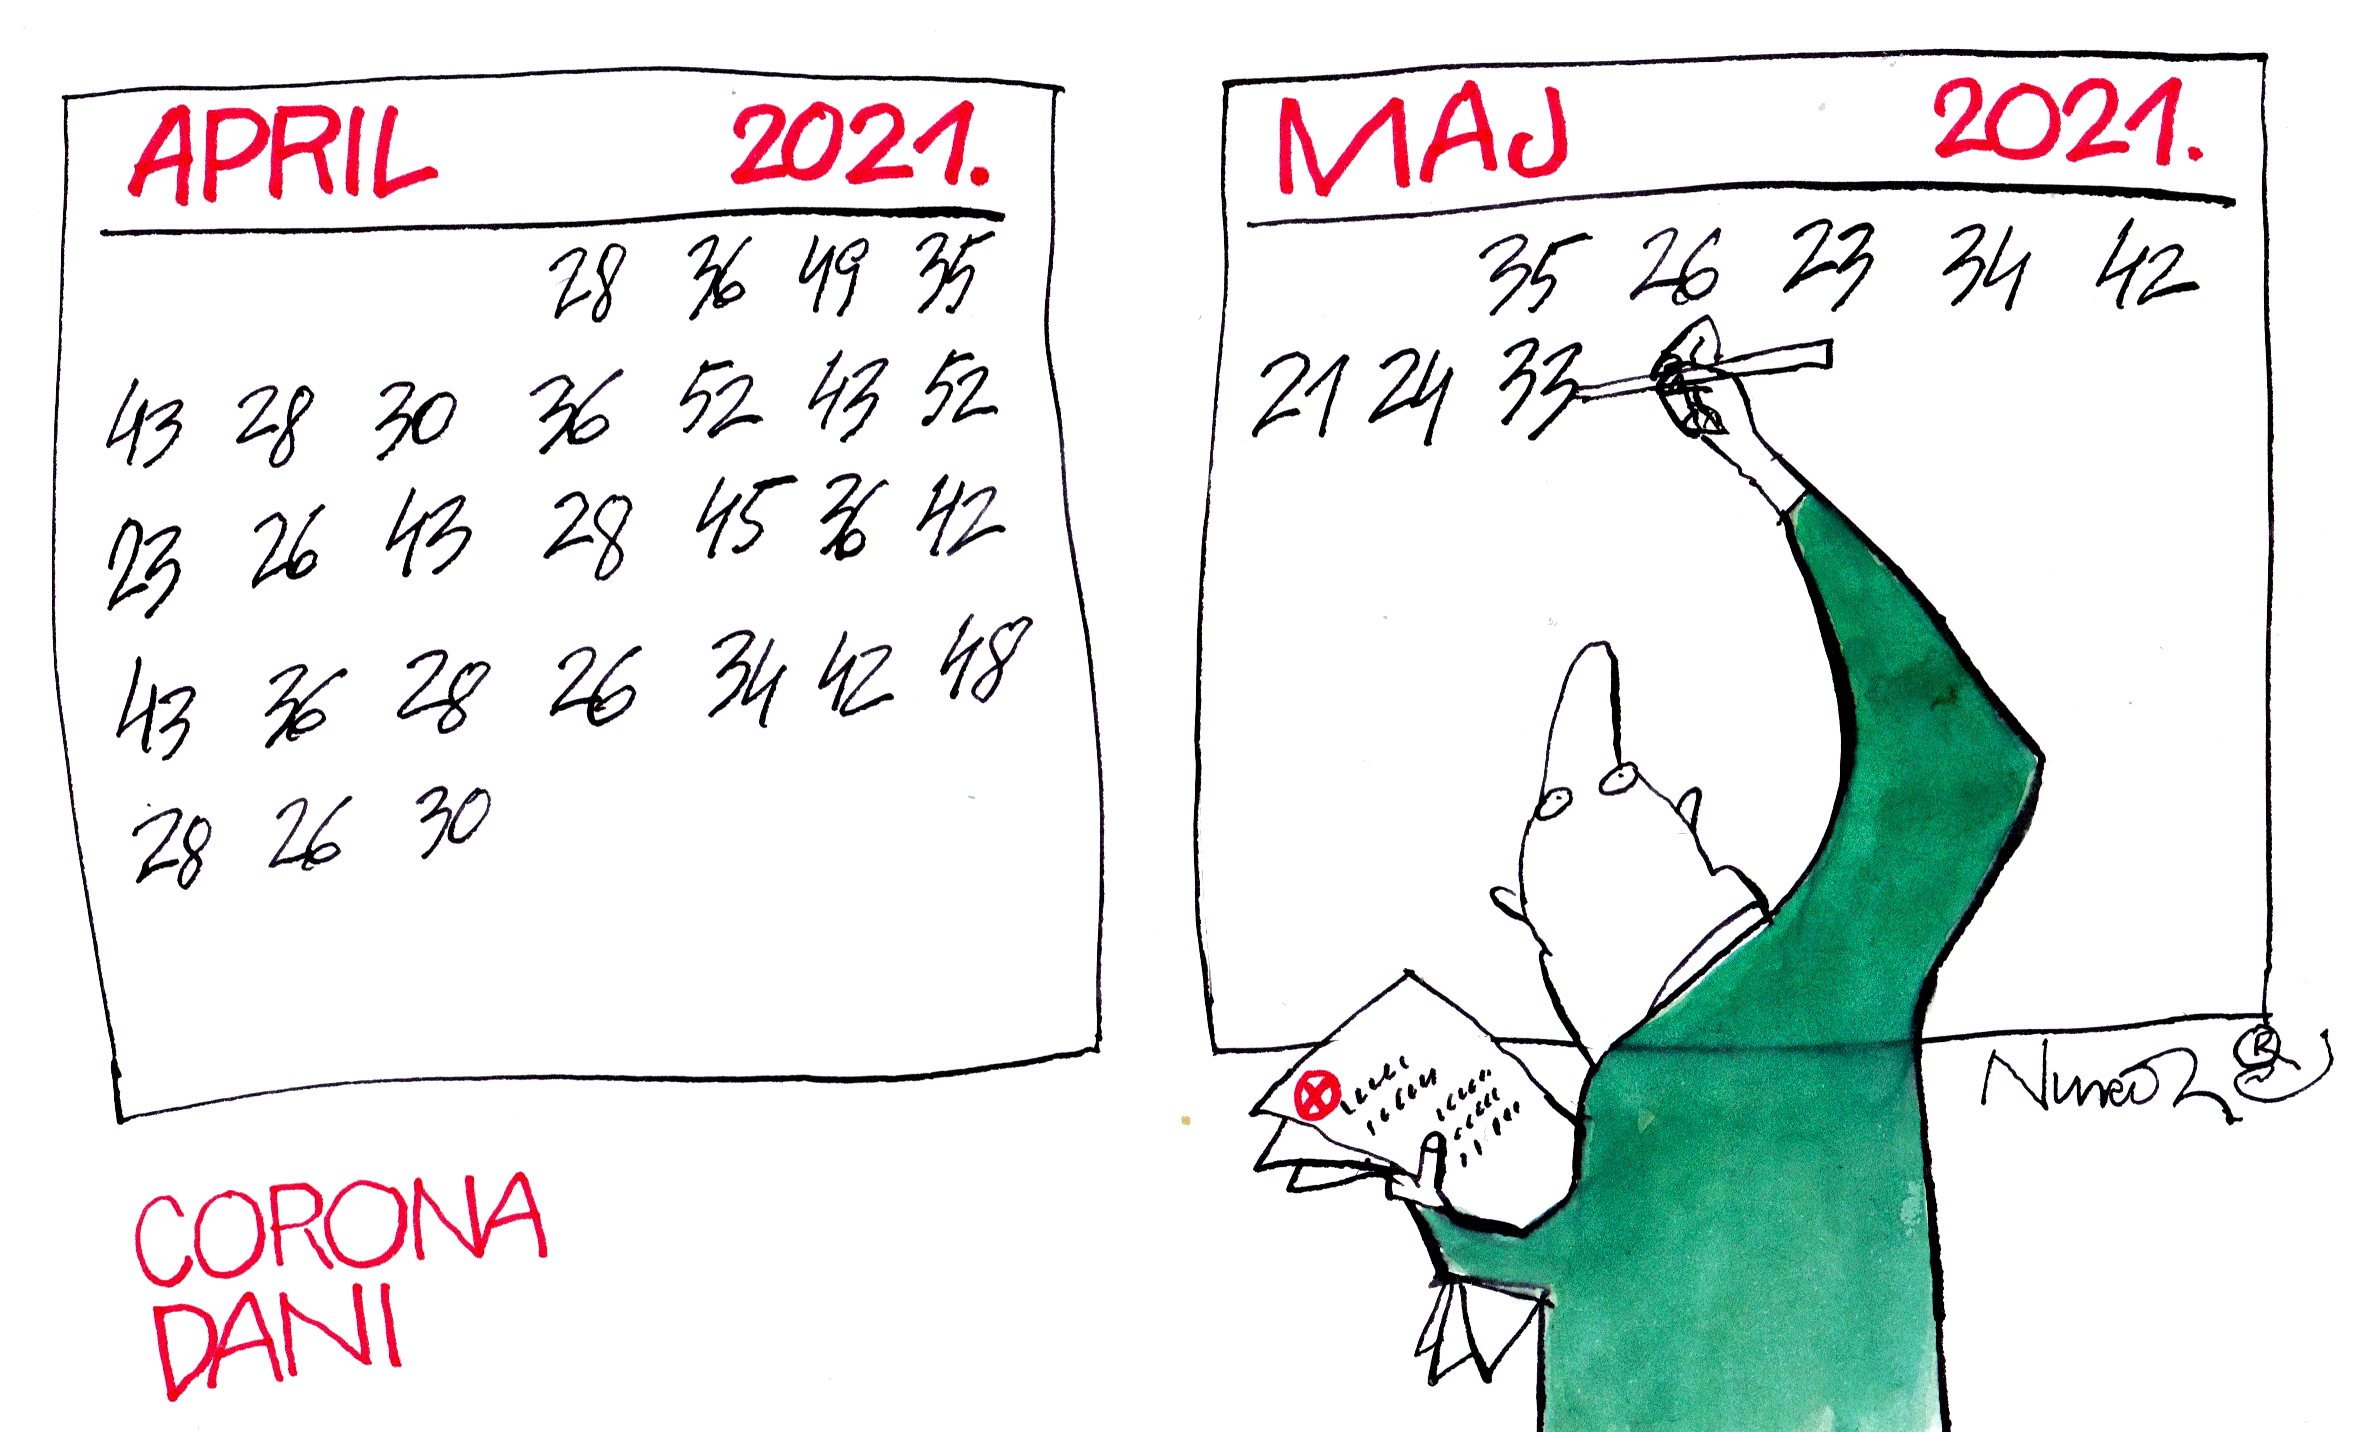 APRIL 2021.
28 36 49 35
43 28 30 36 52 43 52
23 26 43 28 45 36 42
43 36 28 26 34 42 48
28 26 30
MAJ 2021.
35 26 23 34 42
21 24 33
CORONA
DANI